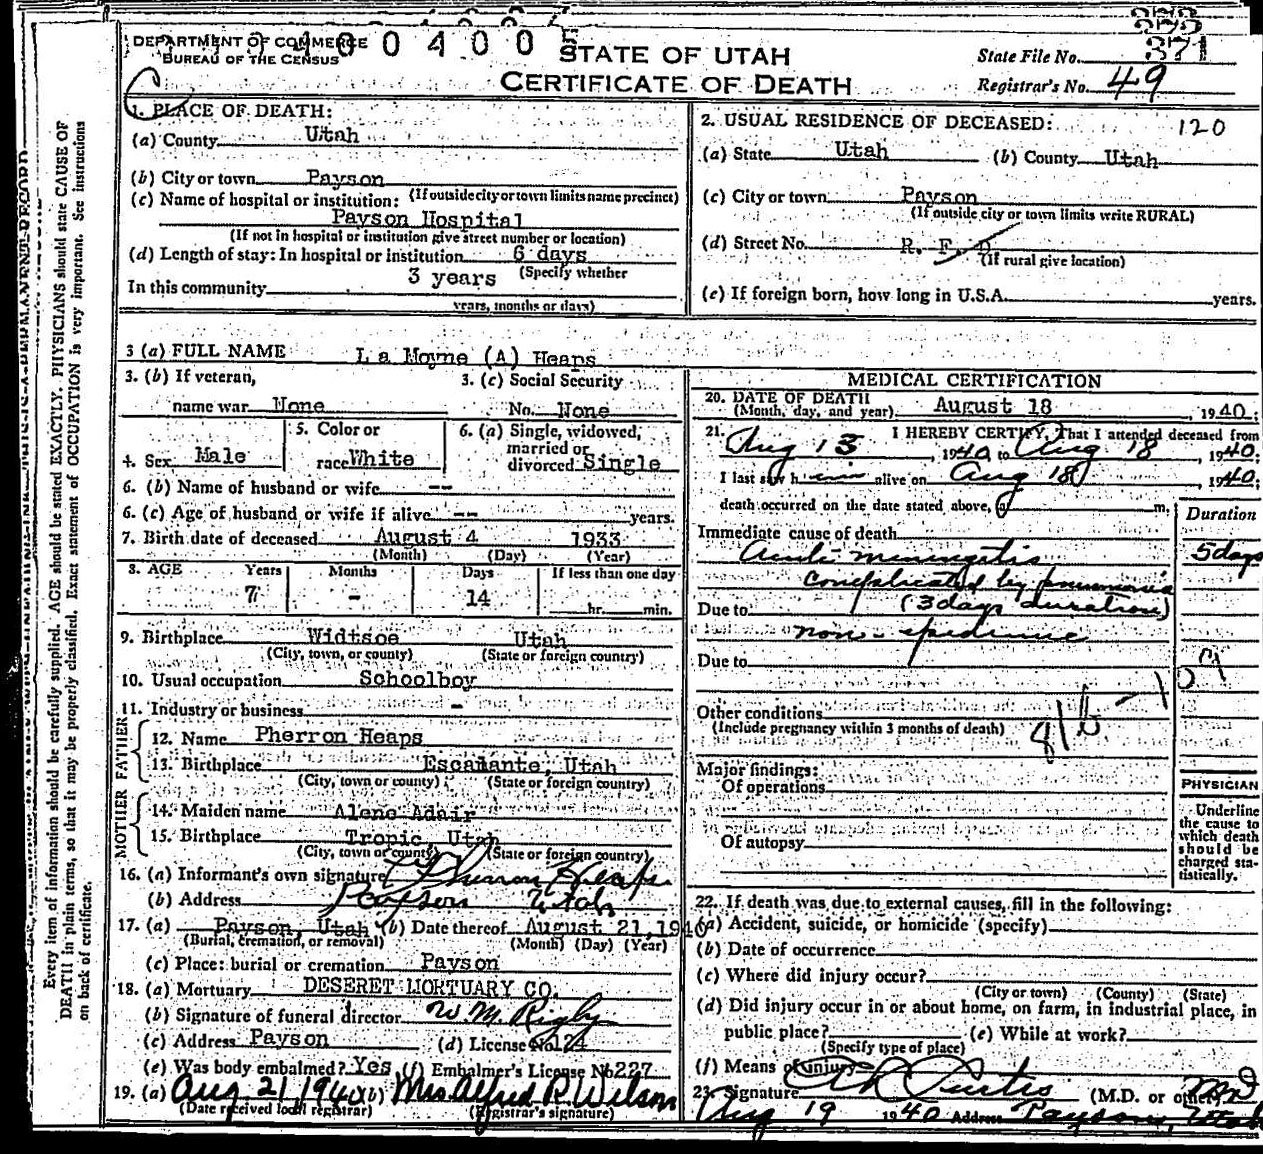 DEPARTMENT OF COMMERCE
BUREAU OF THE CENSUS
STATE OF UTAH
CERTIFICATE OF DEATH
State File No. 371
Registrar's No. 49
1. PLACE OF DEATH:
(a) County Utah
(b) City or town Payson
(If outside city or town limits name precinct)
(c) Name of hospital or institution:
Payson Hospital
(If not in hospital or institution give street number or location)
(d) Length of stay: In hospital or institution 6 days
(Specify whether
In this community 3 years
years, months or days)
2. USUAL RESIDENCE OF DECEASED: 120
(a) State Utah (b) County Utah
(c) City or town Payson
(If outside city or town limits write RURAL)
(d) Street No. R. F. D.
(If rural give location)
(e) If foreign born, how long in U.S.A. years.
3 (a) FULL NAME La Moyne (A) Heaps
3. (b) If veteran,
name war None
3. (c) Social Security
No. None
4. Sex Male
5. Color or
race White
6. (a) Single, widowed,
married or
divorced Single
6. (b) Name of husband or wife --
6. (c) Age of husband or wife if alive -- years.
7. Birth date of deceased August 4 1933
(Month) (Day) (Year)
8. AGE Years Months Days If less than one day
7 - 14 hr. min.
9. Birthplace Widtsoe Utah
(City, town, or county) (State or foreign country)
10. Usual occupation Schoolboy
11. Industry or business -
FATHER
12. Name Pherron Heaps
13. Birthplace Escalante, Utah
(City, town or county) (State or foreign country)
MOTHER
14. Maiden name Alene Adair
15. Birthplace Tropic, Utah
(City, town or county) (State or foreign country)
16. (a) Informant's own signature Pherron Heaps
(b) Address Payson Utah
17. (a) Payson, Utah (b) Date thereof August 21, 1940
(Burial, cremation, or removal) (Month) (Day) (Year)
(c) Place: burial or cremation Payson
18. (a) Mortuary DESERET MORTUARY CO.
(b) Signature of funeral director W. M. Rigby
(c) Address Payson (d) License No. 124
(e) Was body embalmed? Yes (f) Embalmer's License No 227
19. (a) Aug. 21 1940 (b) Mrs Alfred R. Wilson
(Date received local registrar) (Registrar's signature)
MEDICAL CERTIFICATION
20. DATE OF DEATH
(Month, day, and year) August 18, 1940;
21. I HEREBY CERTIFY, That I attended deceased from
Aug 13, 1940 to Aug 18, 1940;
I last saw him alive on Aug 18, 1940;
death occurred on the date stated above, a m.
Duration
Immediate cause of death
Acute meningitis 5 days
complicated by pneumonia
Due to (3 days duration)
non-epidemic
Due to
Other conditions
(Include pregnancy within 3 months of death)
Major findings:
Of operations
Of autopsy
PHYSICIAN
Underline
the cause to
which death
should be
charged sta-
tistically.
22. If death was due to external causes, fill in the following:
(a) Accident, suicide, or homicide (specify)
(b) Date of occurrence
(c) Where did injury occur?
(City or town) (County) (State)
(d) Did injury occur in or about home, on farm, in industrial place, in
public place? (e) While at work?
(Specify type of place)
(f) Means of injury
23. Signature Curtis (M.D. or other) MD
Aug 19 1940 Address Payson, Utah
Every item of information should be carefully supplied. AGE should be stated EXACTLY. PHYSICIANS should state CAUSE OF
DEATH in plain terms, so that it may be properly classified. Exact statement of OCCUPATION is very important. See instructions
on back of certificate.